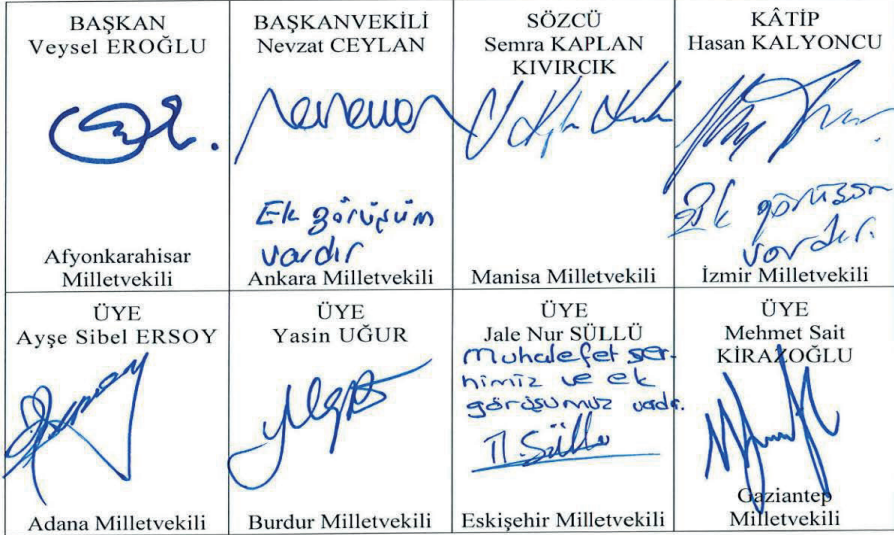 BAŞKAN
Veysel EROĞLU
Afyonkarahisar
Milletvekili
BAŞKANVEKİLİ
Nevzat CEYLAN
Ek görüşüm
vardır
Ankara Milletvekili
SÖZCÜ
Semra KAPLAN
KIVIRCIK
Manisa Milletvekili
KÂTİP
Hasan KALYONCU
Ek görüşüm
vardır.
İzmir Milletvekili
ÜYE
Ayşe Sibel ERSOY
Adana Milletvekili
ÜYE
Yasin UĞUR
Burdur Milletvekili
ÜYE
Jale Nur SÜLLÜ
Muhalefet şer-
himiz ve ek
görüşümüz vadr.
Eskişehir Milletvekili
ÜYE
Mehmet Sait
KİRAZOĞLU
Gaziantep
Milletvekili